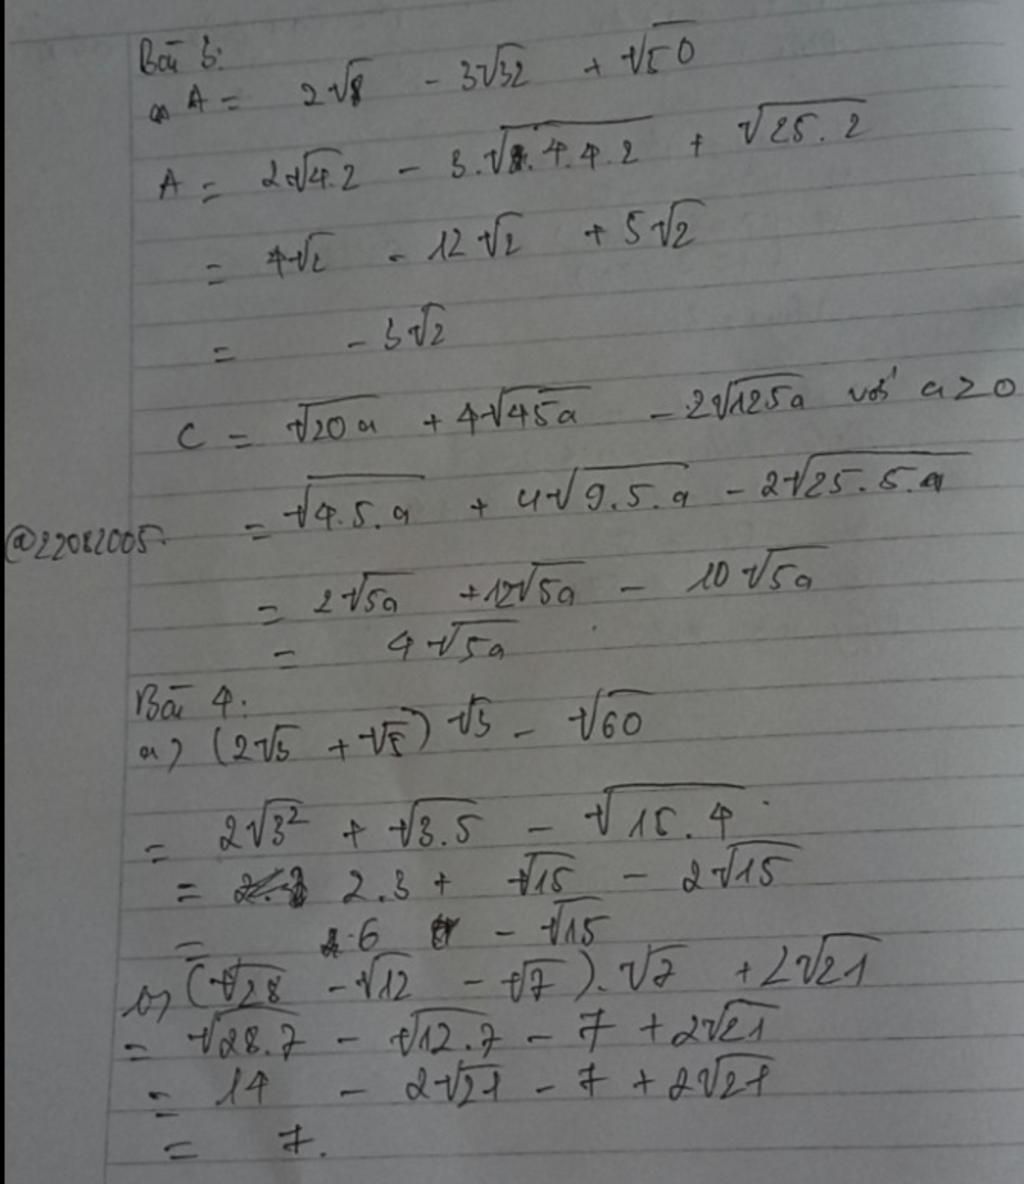 Bài 3:
a, A = 2√8 - 3√32 + √50
A = 2√4.2 - 3.√4.4.2 + √25.2
= 4√2 - 12√2 + 5√2
= - 3√2
C = √20a + 4√45a - 2√125a với a ≥ 0
= √4.5.a + 4√9.5.a - 2√25.5.a
@22082005.
= 2√5a + 12√5a - 10√5a
= 4√5a
Bài 4:
a) (2√3 + √5) √3 - √60
= 2√3² + √3.5 - √15.4
= 2.3 + √15 - 2√15
= 6 - √15
b) (√28 - √12 - √7).√7 + 2√21
= √28.7 - √12.7 - 7 + 2√21
= 14 - 2√21 - 7 + 2√21
= 7.